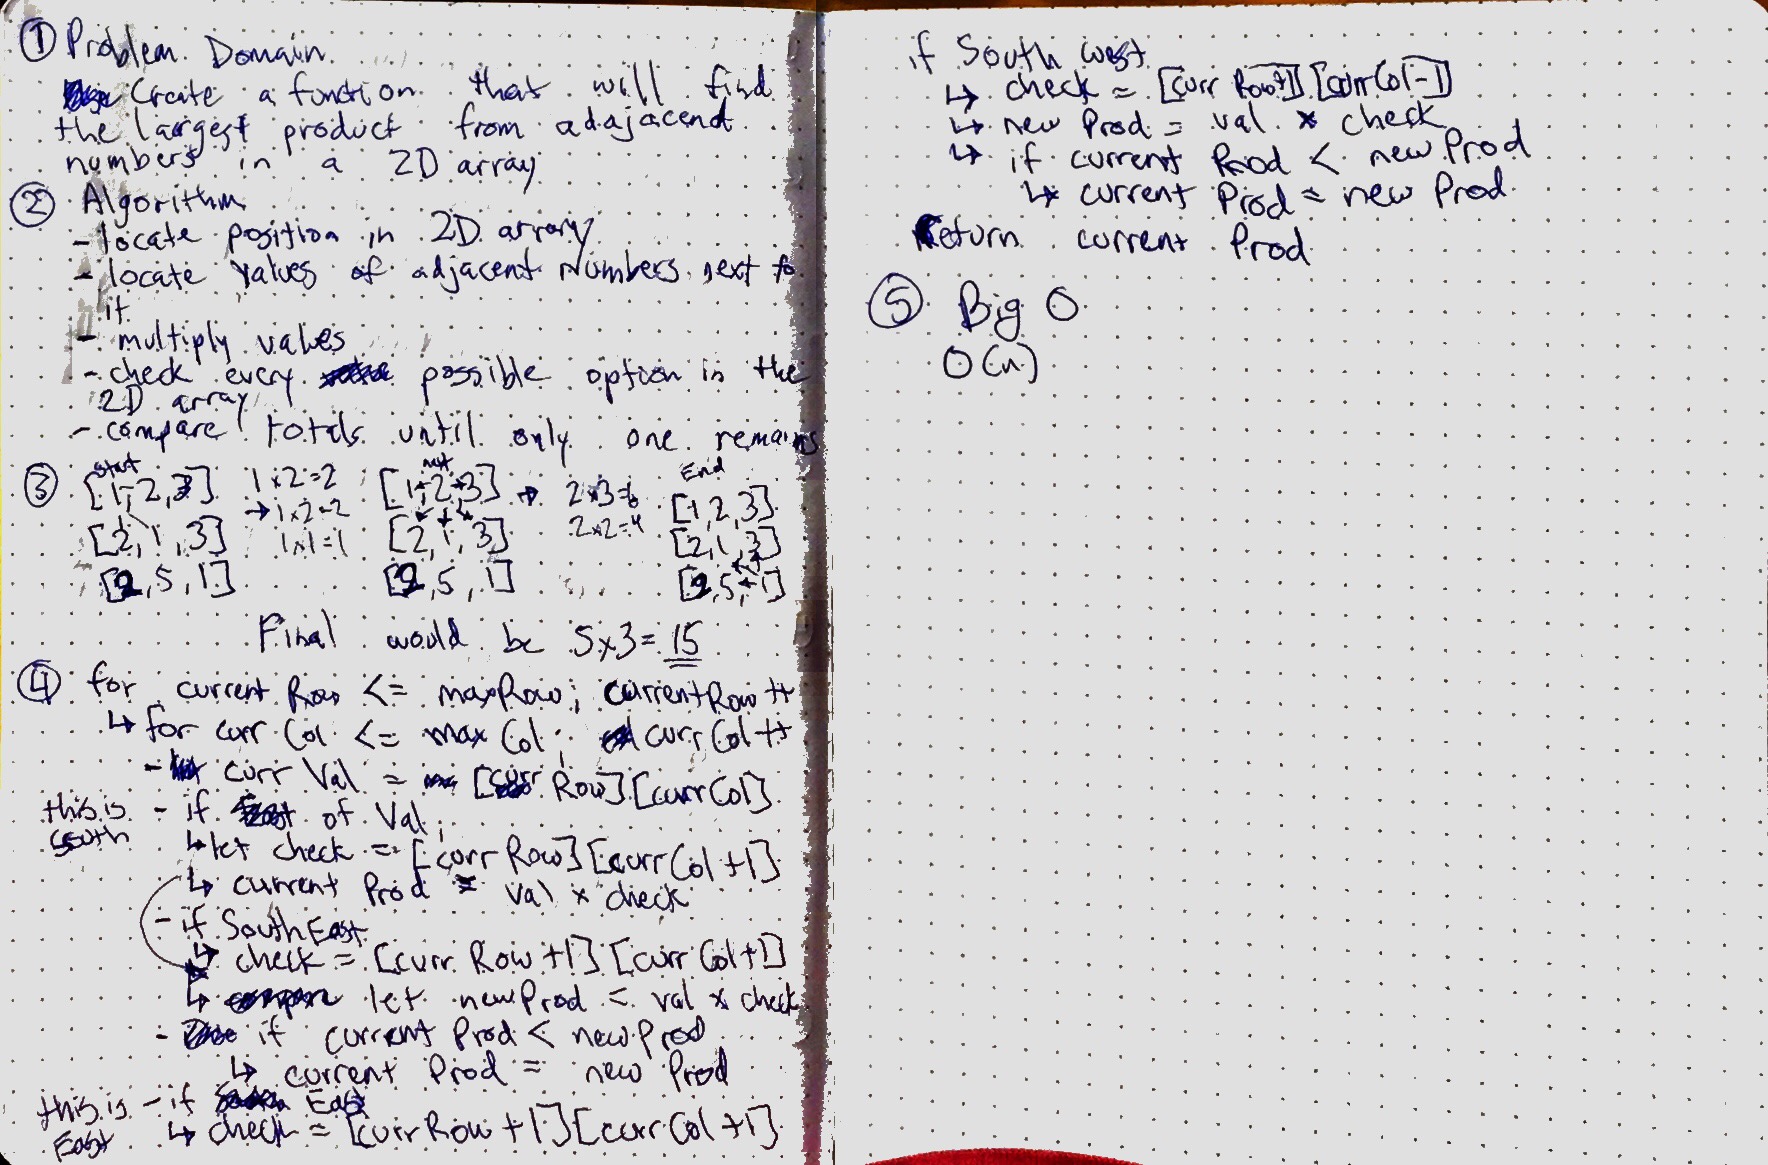 ① Problem Domain
Create a function that will find
the largest product from adajacent
numbers in a 2D array
② Algorithm
- locate position in 2D array
- locate values of adjacent numbers next to
it
- multiply values
- check every possible option in the
2D array
- compare totals until only one remains
③ start next End
[1, 2, 3] 1x2=2 [1, 2, 3] → 2x3=6 [1, 2, 3]
→ 1x2=2 2x2=4
[2, 1, 3] 1x1=1 [2, 1, 3] [2, 1, 3]
[2, 5, 1] [2, 5, 1] [2, 5, 1]
Final would be 5x3=15
④ for current Row <= maxRow; currentRow++
↳ for curr Col <= max Col; curr Col++
- curr Val = [curr Row][curr Col]
this is - if of Val;
south
↳ let check = [curr Row][curr Col +1]
↳ current Prod = val x check
- if South East
↳ check = [curr Row +1][curr Col+1]
↳ let newProd = val x check
- if current Prod < new Prod
↳ current Prod = new Prod
this is - if East
East ↳ check = [curr Row +1][curr Col +1]
if South west
↳ check = [curr Row+1][curr Col-1]
↳ new Prod = val x check
↳ if current Prod < new Prod
↳ current Prod = new Prod
Return current Prod
⑤ Big O
O(n)